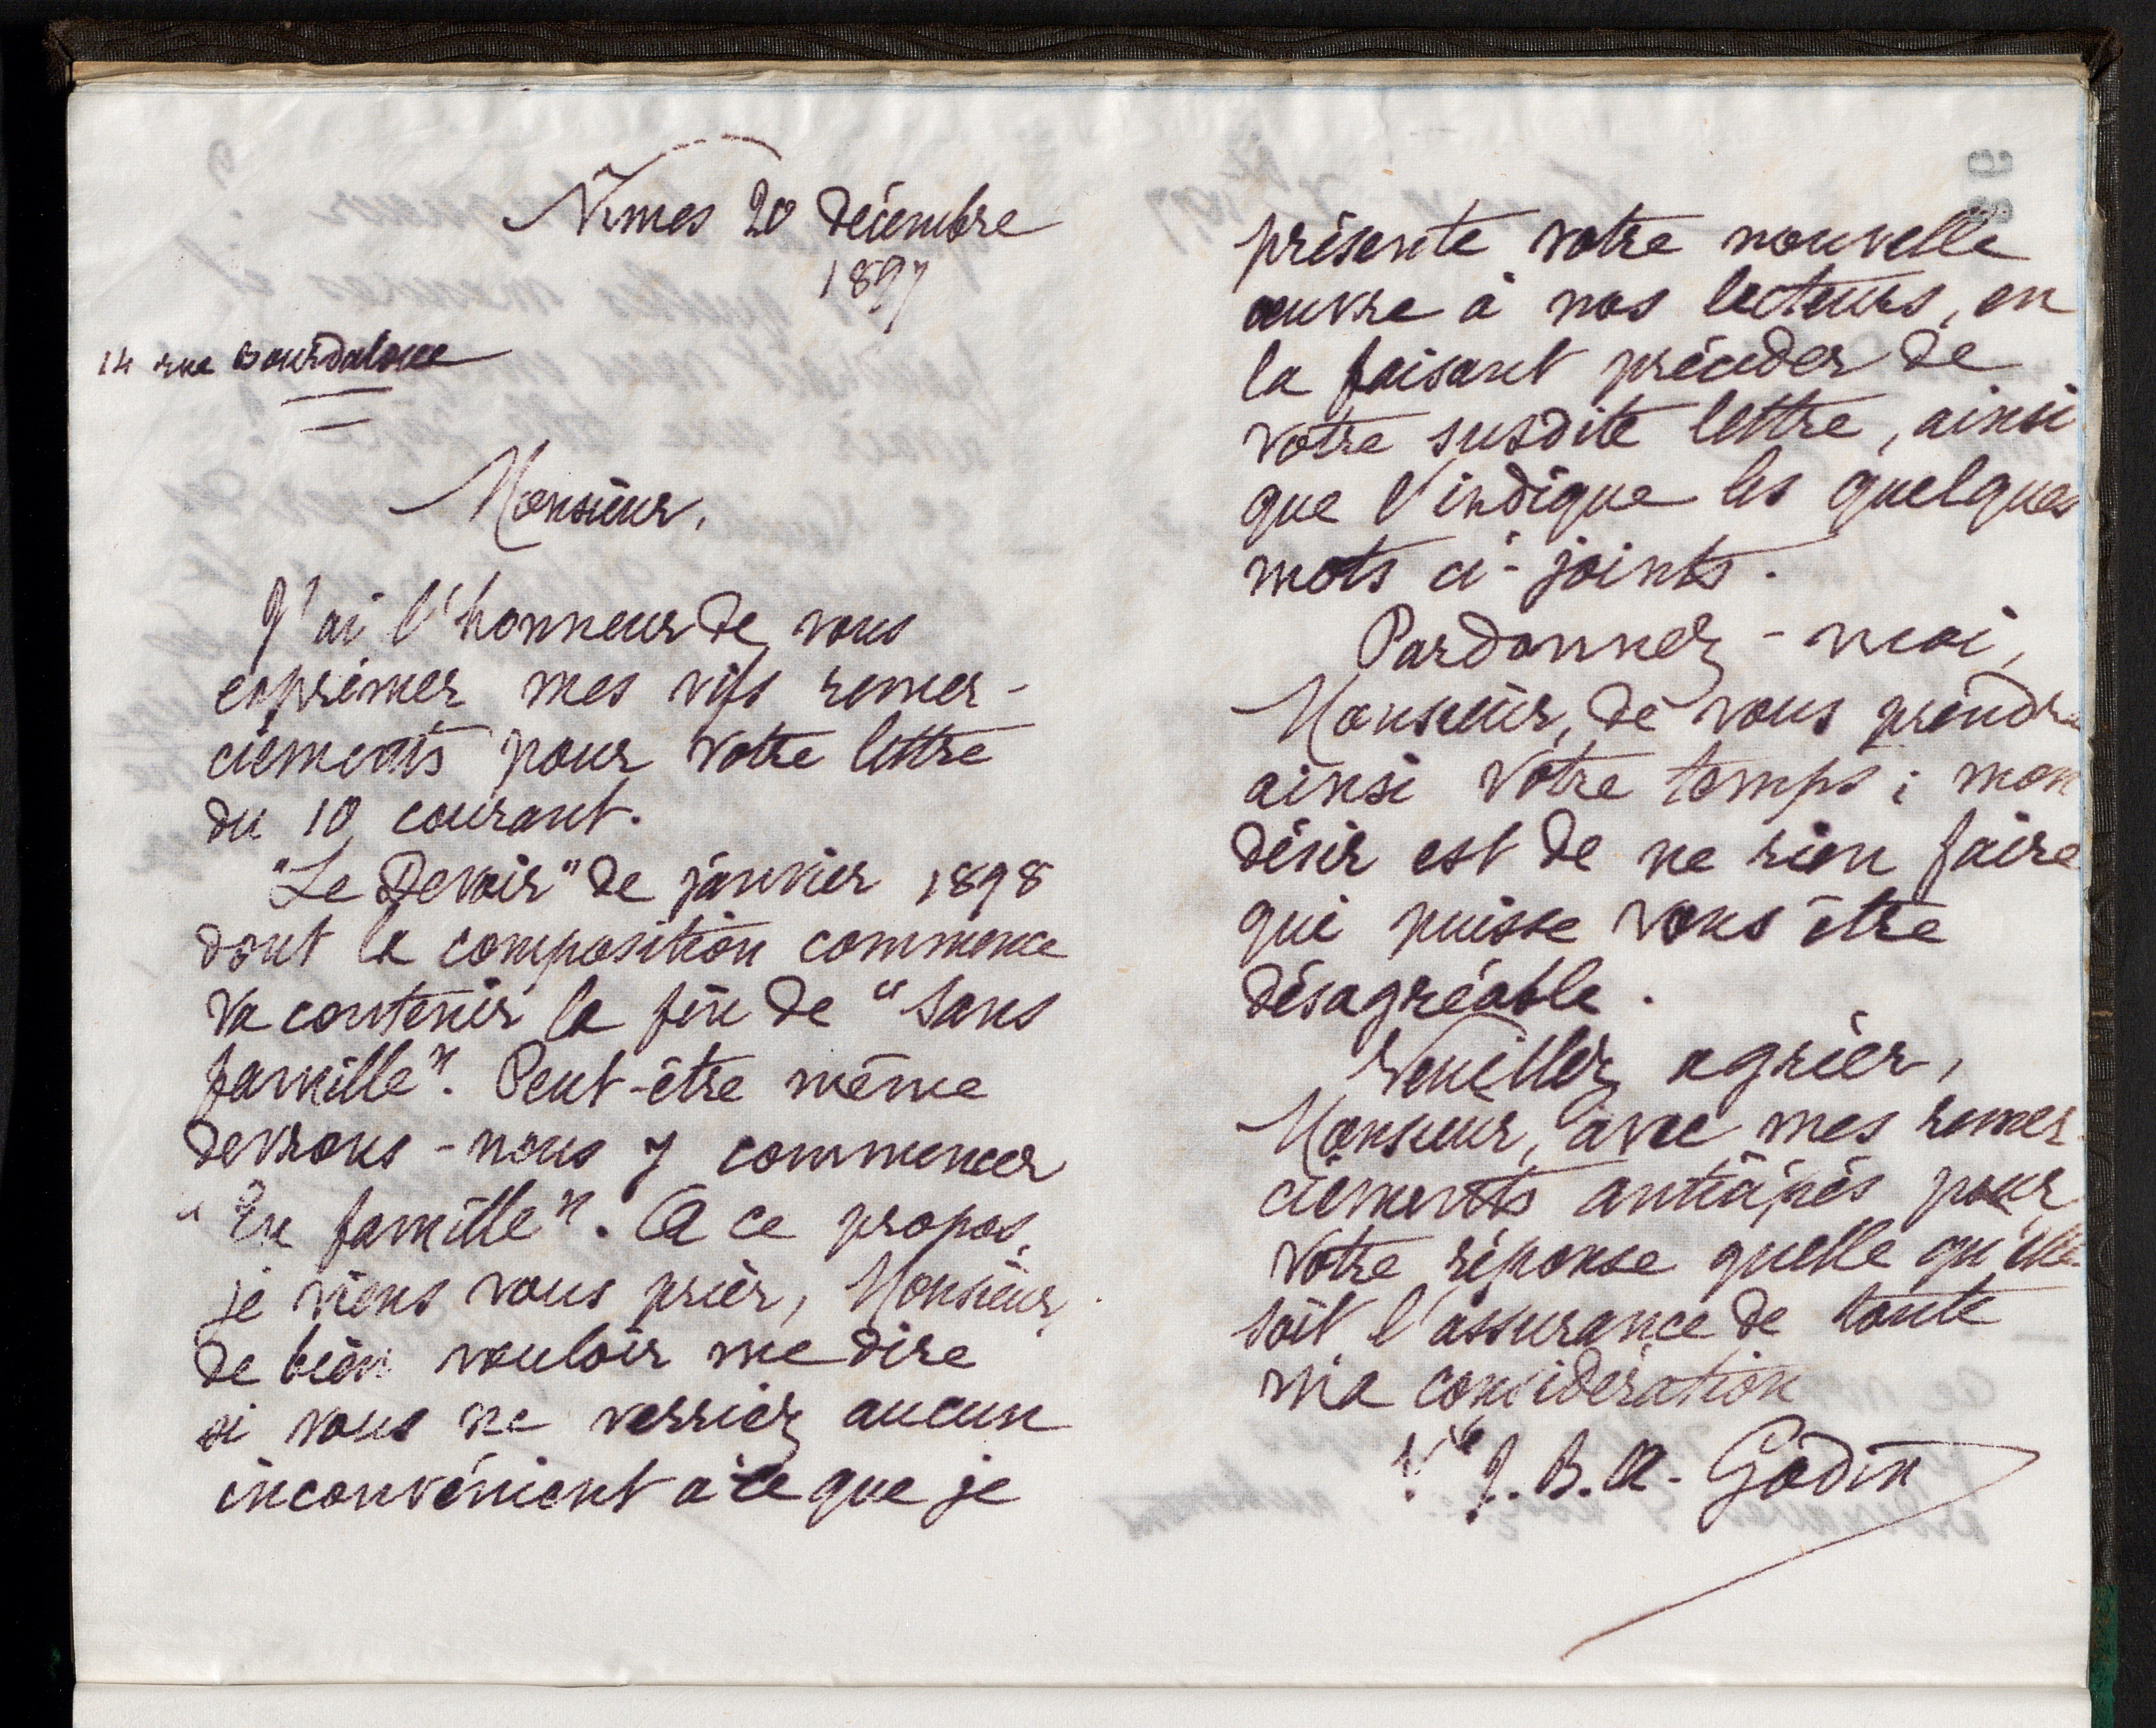 Nîmes 20 décembre
1897
14 rue Bourdaloue
Monsieur,
J'ai l'honneur de vous
exprimer mes vifs remer-
ciements pour votre lettre
du 10 courant.
"Le Devoir" de janvier 1898
dont la composition commence
va contenir la fin de "Sans
famille". Peut-être même
devrons-nous y commencer
"En famille". A ce propos,
je viens vous prier, Monsieur,
de bien vouloir me dire
si vous ne verriez aucun
inconvénient à ce que je
présente votre nouvelle
œuvre à nos lecteurs, en
la faisant précéder de
votre susdite lettre, ainsi
que l'indique les quelques
mots ci-joints.
Pardonnez-moi,
Monsieur, de vous prendre
ainsi votre temps ; mon
désir est de ne rien faire
qui puisse vous être
désagréable.
Veuillez agréer,
Monsieur, avec mes remer-
ciements anticipés pour
votre réponse quelle qu'elle
soit l'assurance de toute
ma considération
Vve J. B. A. Godin